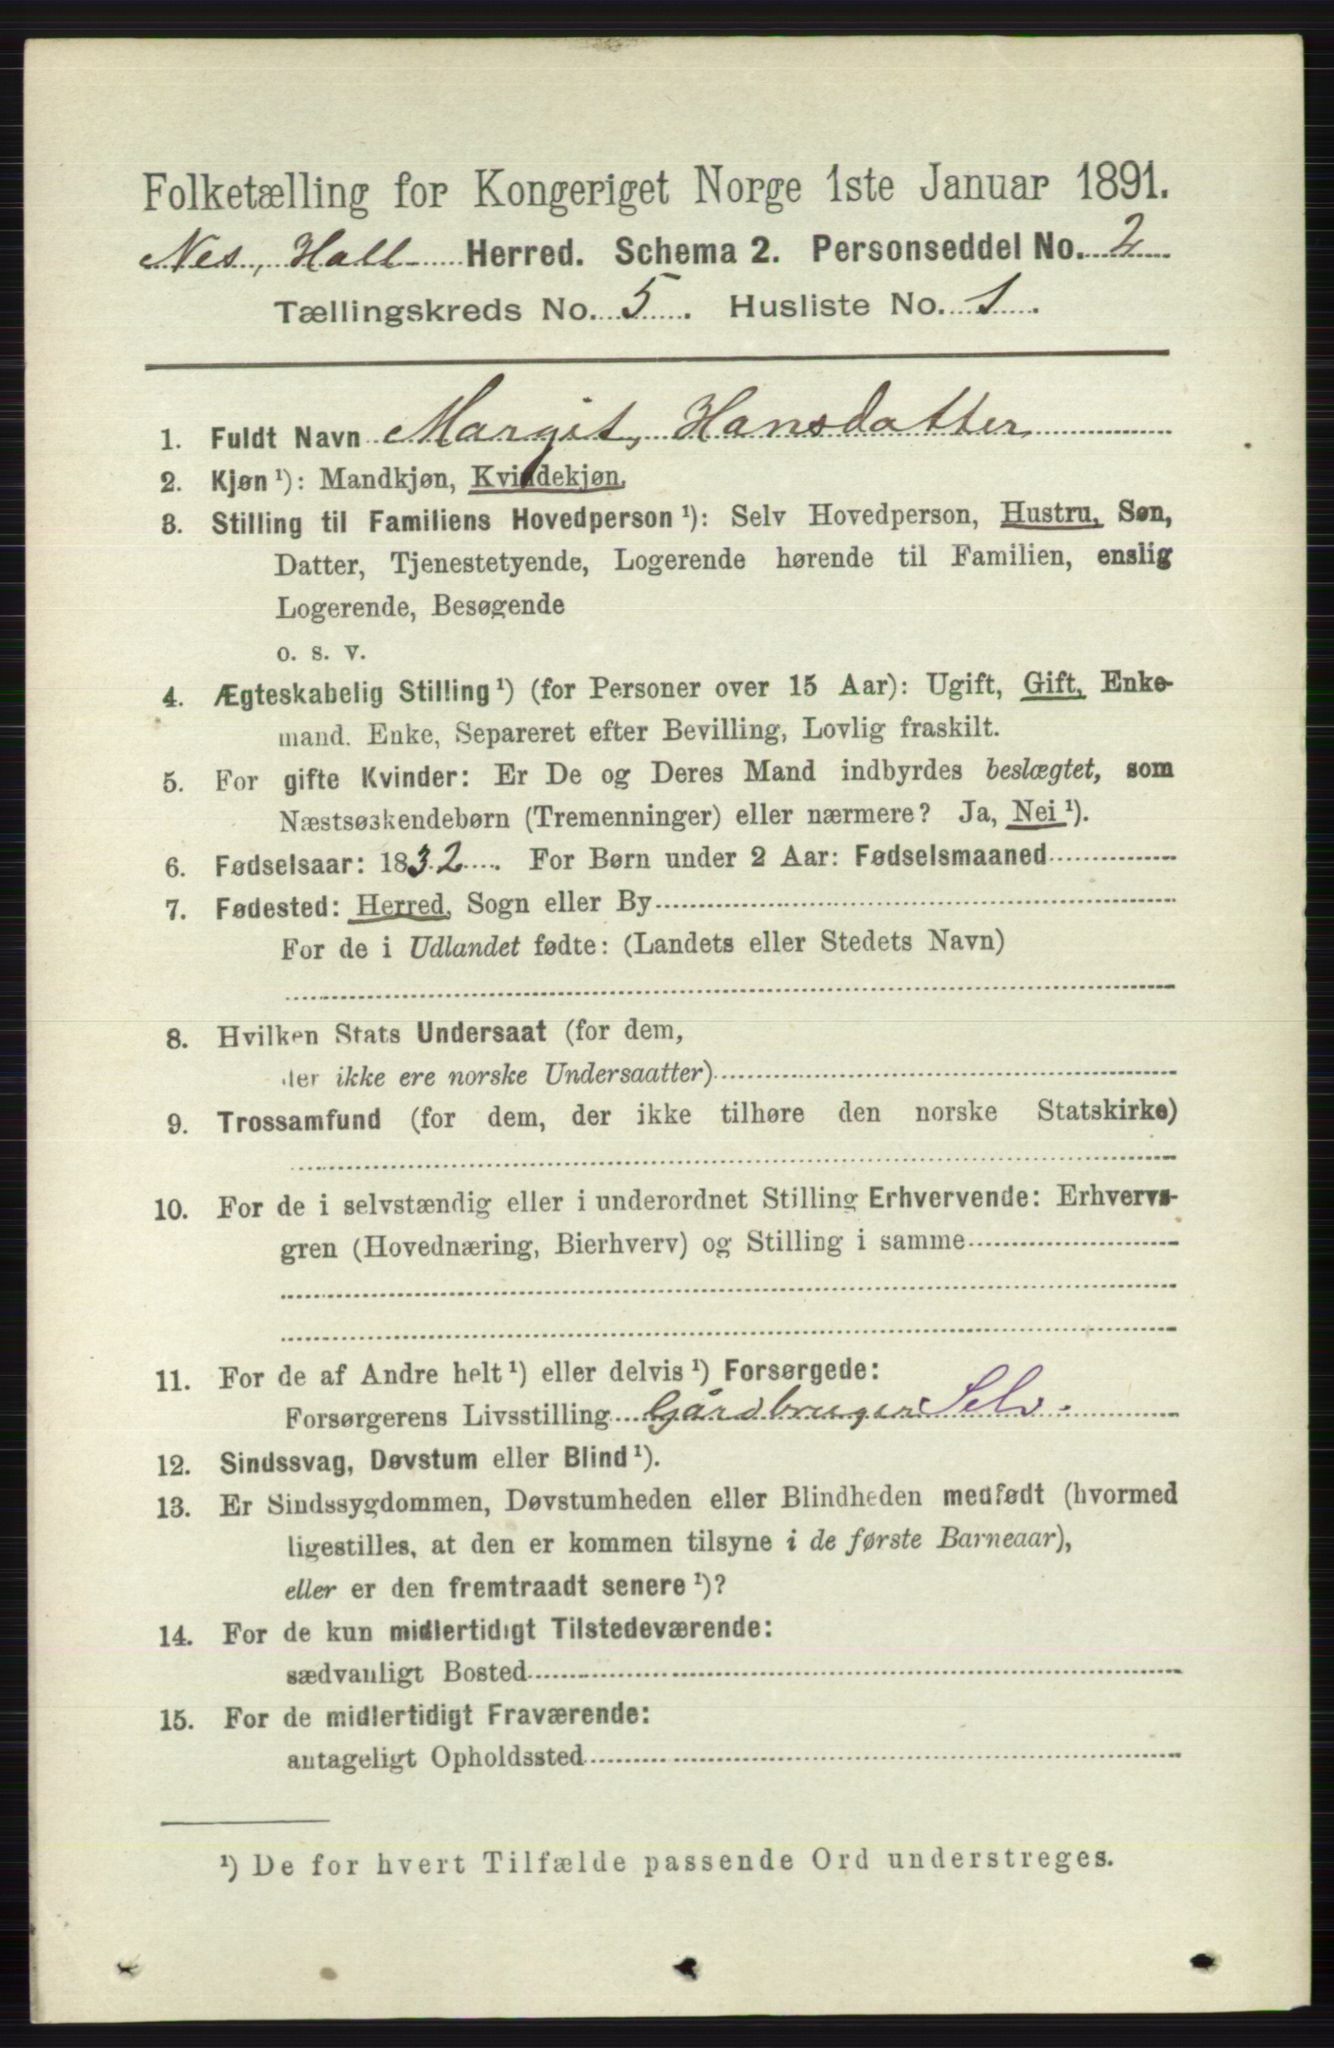 Folketælling for Kongeriget Norge 1ste Januar 1891.
Nes, Hall Herred. Schema 2. Personseddel No. 2
Tællingskreds No. 5. Husliste No. 1.
1. Fuldt Navn Margit, Hansdatter
2. Kjøn ¹): Mandkjøn, Kvindekjøn.
3. Stilling til Familiens Hovedperson ¹): Selv Hovedperson, Hustru, Søn,
Datter, Tjenestetyende, Logerende hørende til Familien, enslig
Logerende, Besøgende
o. s. v.
4. Ægteskabelig Stilling ¹) (for Personer over 15 Aar): Ugift, Gift, Enke-
mand. Enke, Separeret efter Bevilling, Lovlig fraskilt.
5. For gifte Kvinder: Er De og Deres Mand indbyrdes beslægtet, som
Næstsøskendebørn (Tremenninger) eller nærmere? Ja, Nei ¹).
6. Fødselsaar: 1832. For Børn under 2 Aar: Fødselsmaaned
7. Fødested: Herred, Sogn eller By
For de i Udlandet fødte: (Landets eller Stedets Navn)
8. Hvilken Stats Undersaat (for dem,
der ikke ere norske Undersaatter)
9. Trossamfund (for dem, der ikke tilhøre den norske Statskirke)
10. For de i selvstændig eller i underordnet Stilling Erhvervende: Erhvervs-
gren (Hovednæring, Bierhverv) og Stilling i samme
11. For de af Andre helt ¹) eller delvis ¹) Forsørgede:
Forsørgerens Livsstilling Gårdbruger Selv.
12. Sindssvag, Døvstum eller Blind ¹).
13. Er Sindssygdommen, Døvstumheden eller Blindheden medfødt (hvormed
ligestilles, at den er kommen tilsyne i de første Barneaar),
eller er den fremtraadt senere ¹)?
14. For de kun midlertidigt Tilstedeværende:
sædvanligt Bosted
15. For de midlertidigt Fraværende:
antageligt Opholdssted
¹) De for hvert Tilfælde passende Ord understreges.